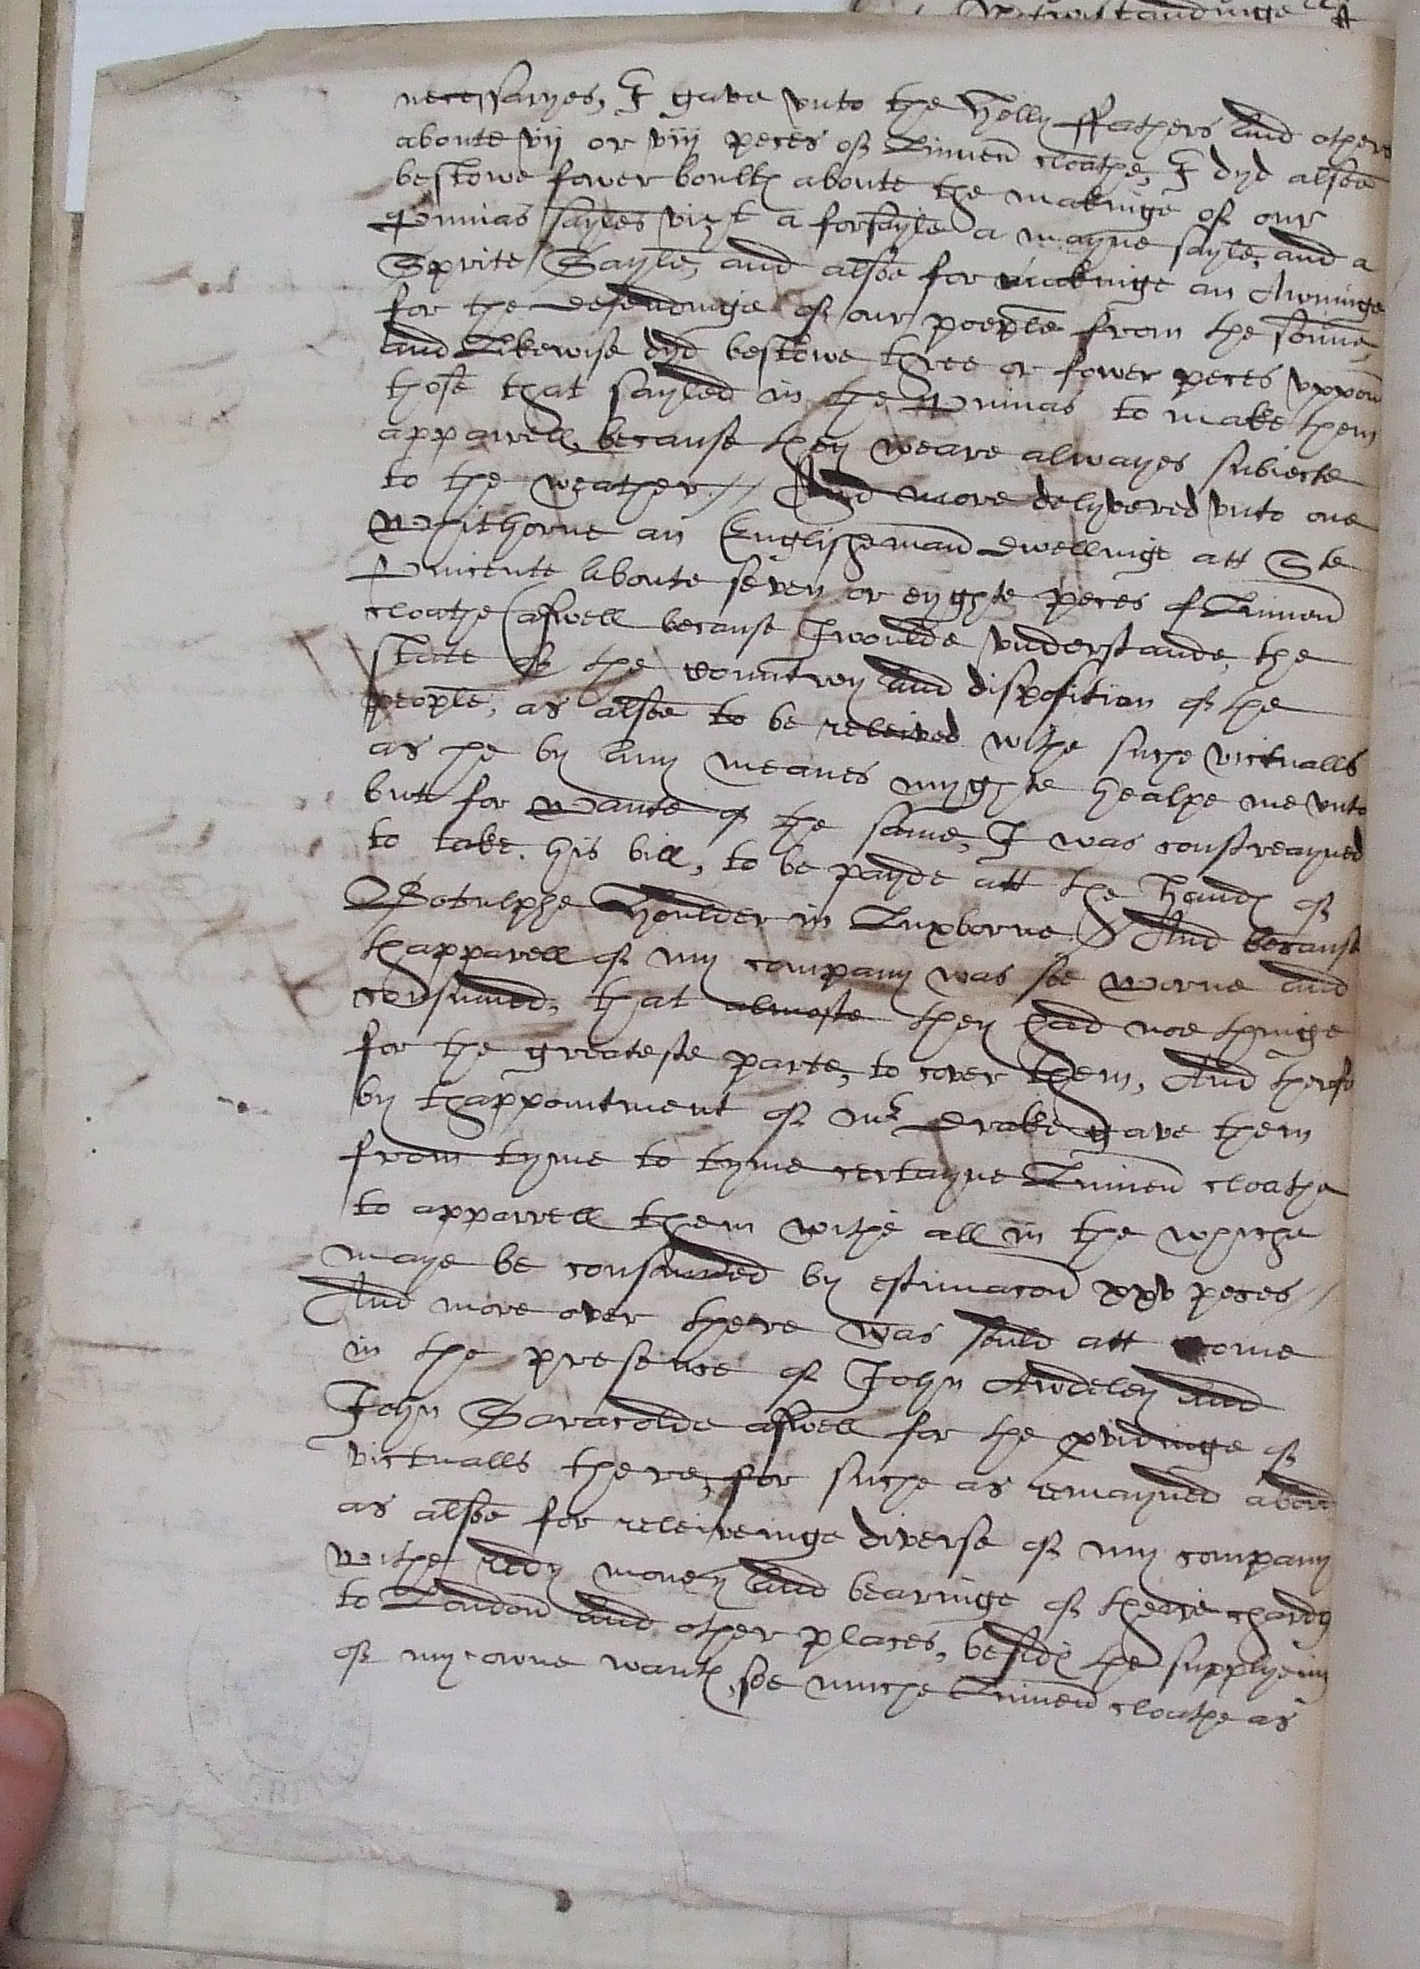 wtwistandinge
necessaryes, I gave unto the Holly ffathers And others
aboute vij or viij peces of Linnen cloathe, I dyd alsoe
bestowe fower boultes aboute the makinge of our
Pinnas sayles vizt a forsayle a mayne sayle, and a
Sprite Sayle, and alsoe for makinge an Awninge
for the defendinge of our poeple from the sonne,
And Likewise dyd bestowe three or fower peces uppon
those that sayled in the Pinnas to make them
apparrell, because they weare alwayes subiecte
to the weather // And more delyvered unto one
Whithorne an Englisheman dwellinge att Ste
Vincente Aboute seven or eyghte peces of Linnen
cloathe (aswell because I woulde understande the
state of the Countrey And disposition of the
people, as alsoe to be releived withe suche victualls
as he by Any meanes myghte healpe me unto
but for wante of the same, I was constreayned
to take his bill, to be payde att the Handes of
Botulphe Houlder in Luxborne // And because
thapparell of my company was soe worne And
consumed, that almoste they had noe thinge
for the greateste parte, to cover them, And therfo
by thappointment of Mr Drake gave them
from tyme to tyme certayne Linnen cloathe
to apparrell them withe all in the whiche
maye be consumed by estimacon xxv peces //
And more over there was sould att
in the presence of John Awdeley And
John Saracolde aswell for the pvidinge of
victualls there, for suche as remayned abord
as alsoe for releiveinge diverse of my company
withe redy money And bearinge of theire chardg
to London And other places, besides the supplyein
of my owne wantes, soe muche Linnen cloathe as